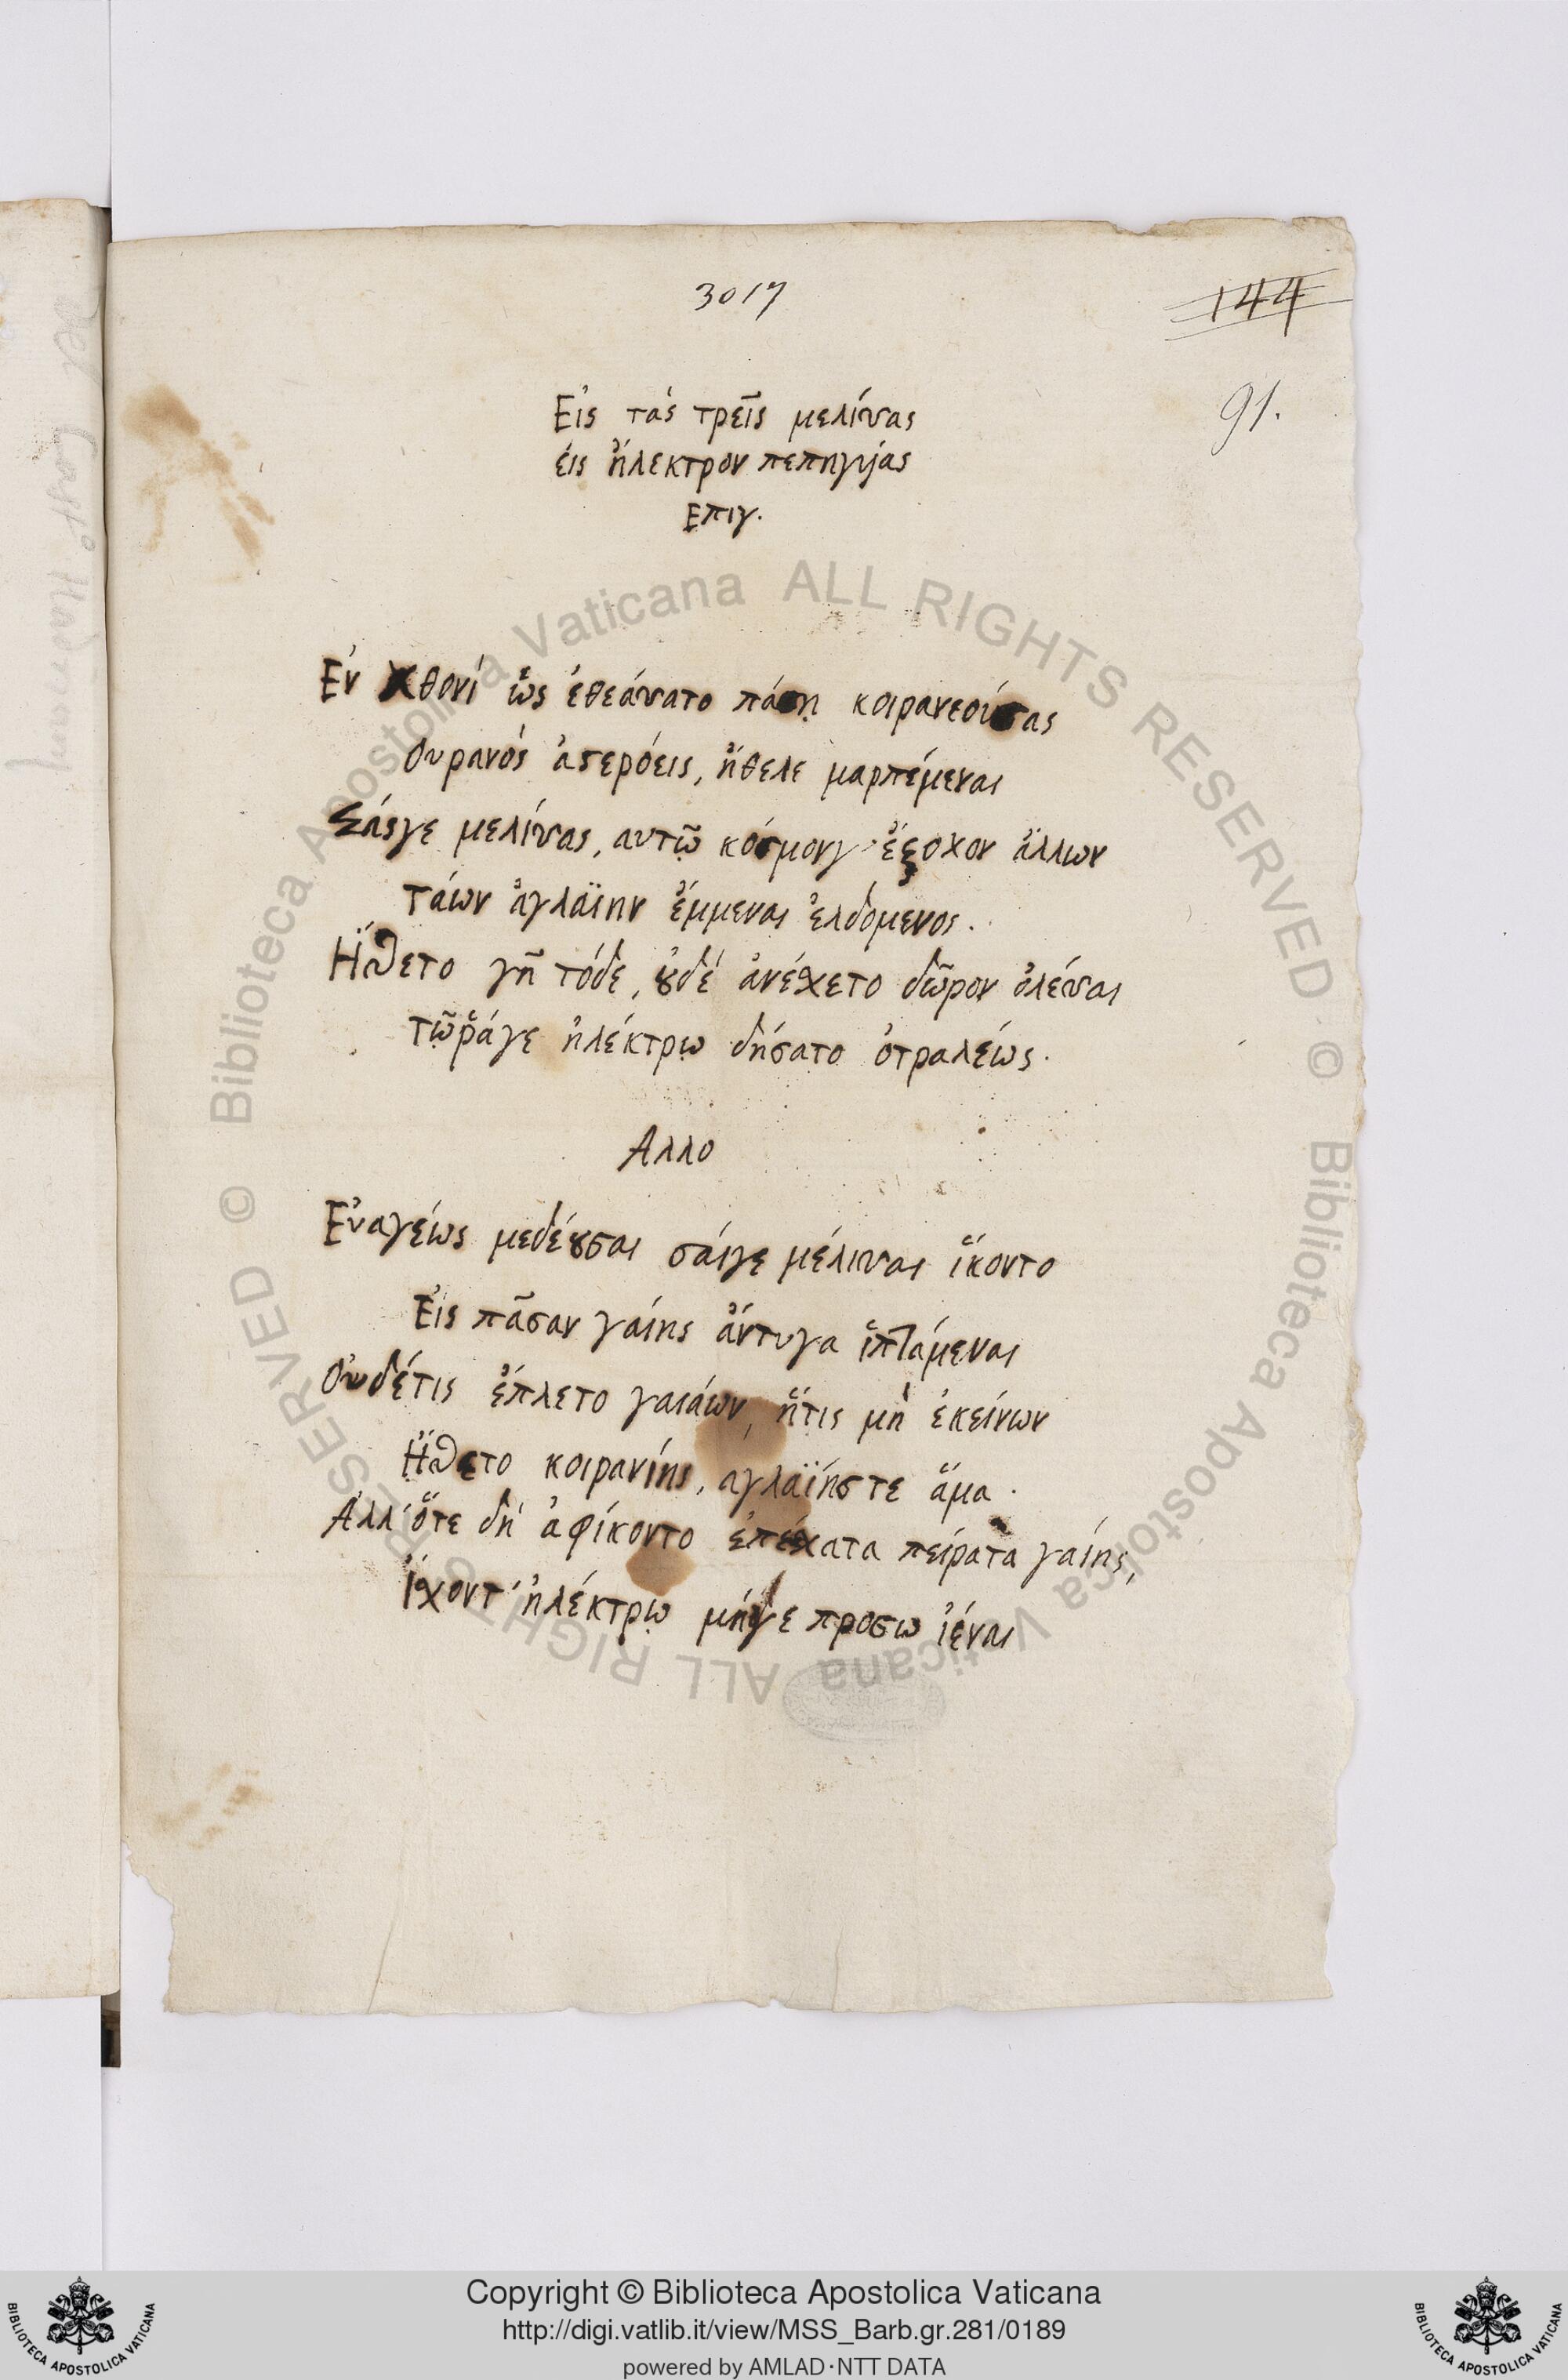 3017
144
91.
Εἰς τὰς τρεῖς μελίσσας
εἰς ἤλεκτρον πεπηγυίας
Επιγ.
Εν χθονὶ ὡς ἐθεάσσατο πάσῃ κοιρανεούσας
Ουρανὸς ἀστερόεις, ἤθελε μαρπέμεναι
Σάςγε μελίσσας, αυτῷ κόσμονγ' ἔξοχον ἄλλων
τάων ἀγλαΐην ἔμμεναι ἐλδόμενος.
Ἤσθετο γῆ τόδε, ουδὲ ἀνέχετο δῶρον ὀλέσσαι
τῷῥάγε ἠλέκτρῳ δήσατο ὀτραλέως.
Αλλο
Εὐαγέως μεδέουσαι σάιγε μέλισσαι ἵκοντο
Εἰς πᾶσαν γαίης ἄντυγα ἱπτάμεναι
Οὐδέτις ἔπλετο γαιάων, ἥτις μὴ ἐκείνων
Ἤσθετο κοιρανίης, αγλαΐηςτε ἅμα.
Αλλ' ὅτε δὴ ἀφίκοντο πείρατα γαίης,
Ἴχοντ' ἠλέκτρῳ μήγε προσω ἰέναι
Copyright © Biblioteca Apostolica Vaticana
http://digi.vatlib.it/view/MSS_Barb.gr.281/0189
powered by AMLAD·NTT DATA
BIBLIOTECA APOSTOLICA VATICANA
BIBLIOTECA APOSTOLICA VATICANA
© Biblioteca Apostolica Vaticana ALL RIGHTS RESERVED · © Biblioteca Apostolica Vaticana ALL RIGHTS RESERVED